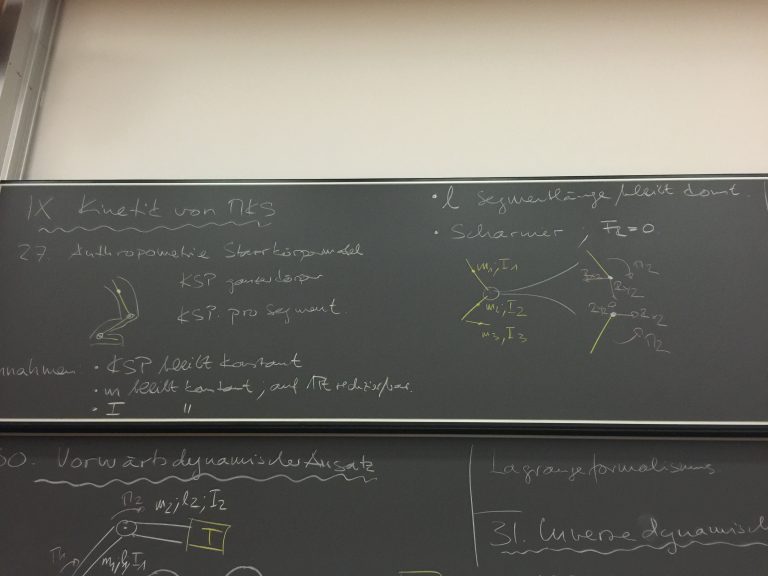 IX Kinetik von MKS
27. Anthropometrie Starrkörpermodell
KSP ganzer Körper
KSP. pro Segment.
nnahmen: • KSP bleibt konstant
• m bleibt konstant; auf Mt reduzierbar.
• I "
• l Segmentlänge bleibt const.
• Scharnier ; F2=0
m1; I1
m2, I2
m3, I3
M2
M2
30. Vorwärtsdynamischer Ansatz
M2 m2; l2; I2
M1 m1, l1, I1
T
Lagrangeformalismus
31. Inverse dynamisch